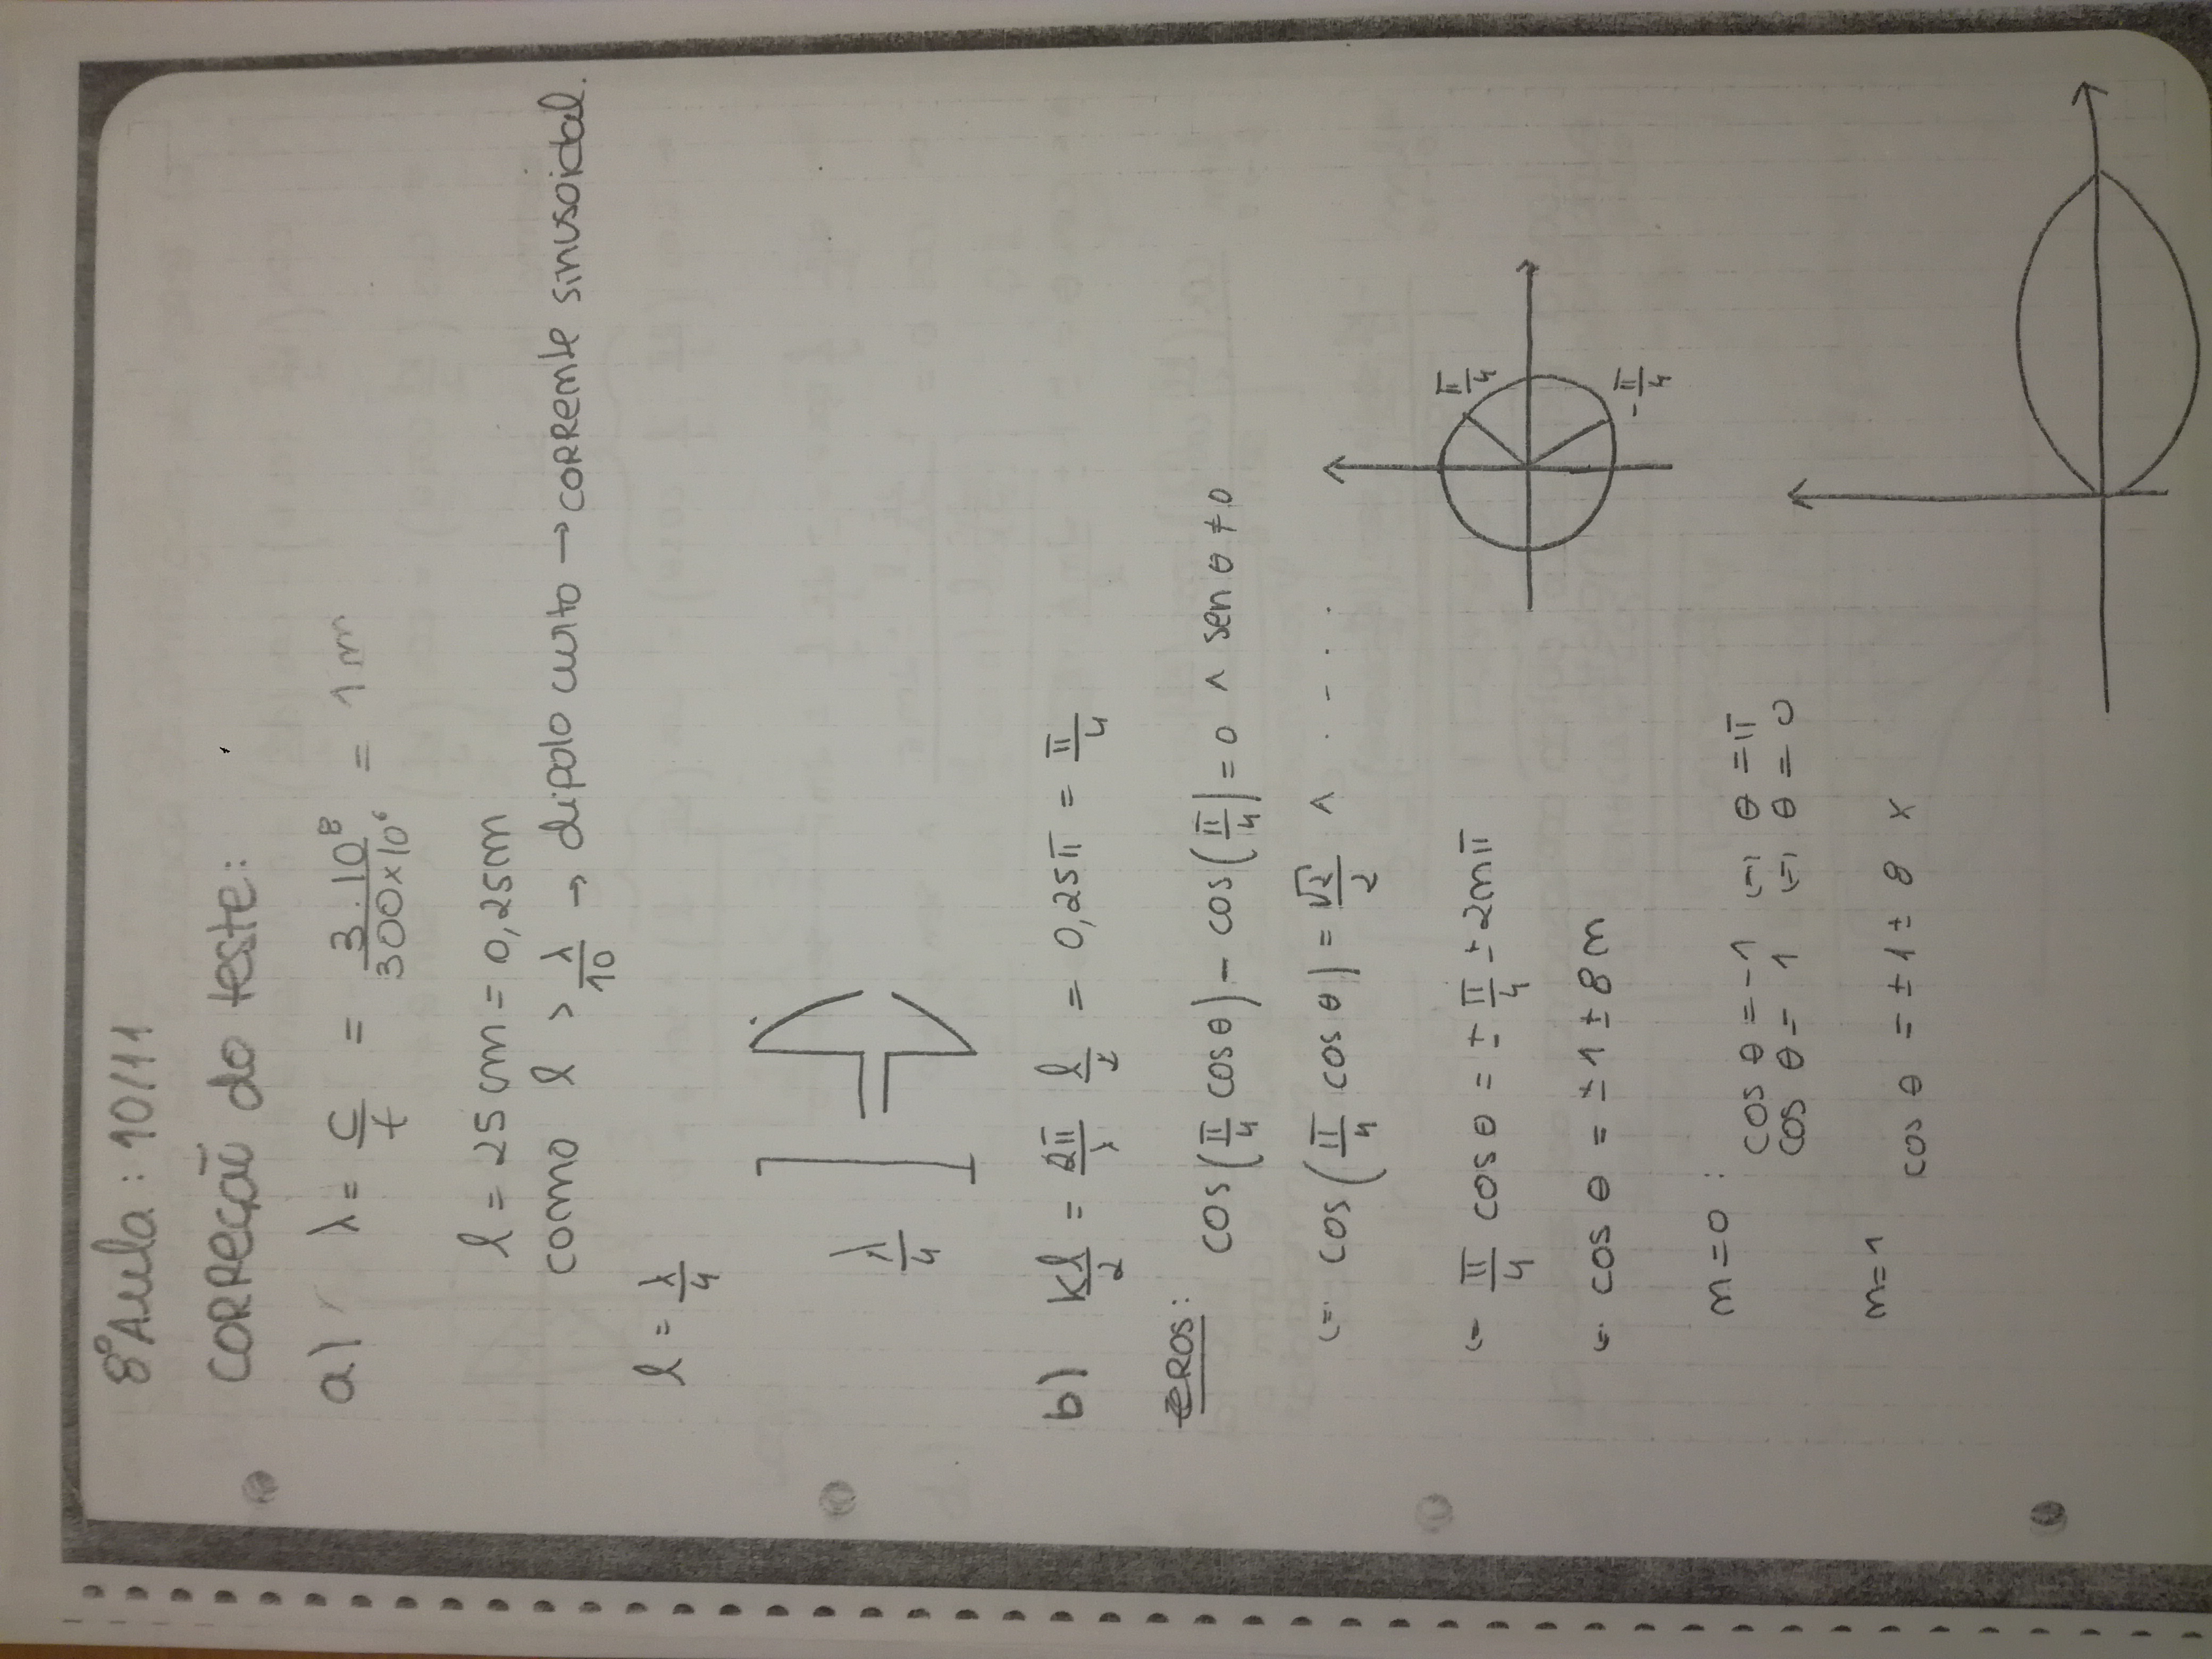 8º Aula : 10/11
CORREÇÃO do teste:
a) λ = c/f = 3.10⁸/300×10⁶ = 1m
l = 25 cm = 0,25m
como l > λ/10 → dipolo curto → corrente sinusoidal.
l = λ/4
λ/4
b) kl/2 = 2π/λ l/2 = 0,25π = π/4
ZEROS:
cos(π/4 cos θ) - cos(π/4) = 0 ∧ sen θ ≠ 0
(=) cos(π/4 cos θ) = √2/2 ∧ . - - . .
(=) π/4 cos θ = ± π/4 ± 2mπ
π/4
(=) cos θ = ±1 ± 8m
-π/4
m=0 :
cos θ = -1 (=) θ = π
cos θ = 1 (=) θ = 0
m=1
cos θ = ±1 ± 8 x